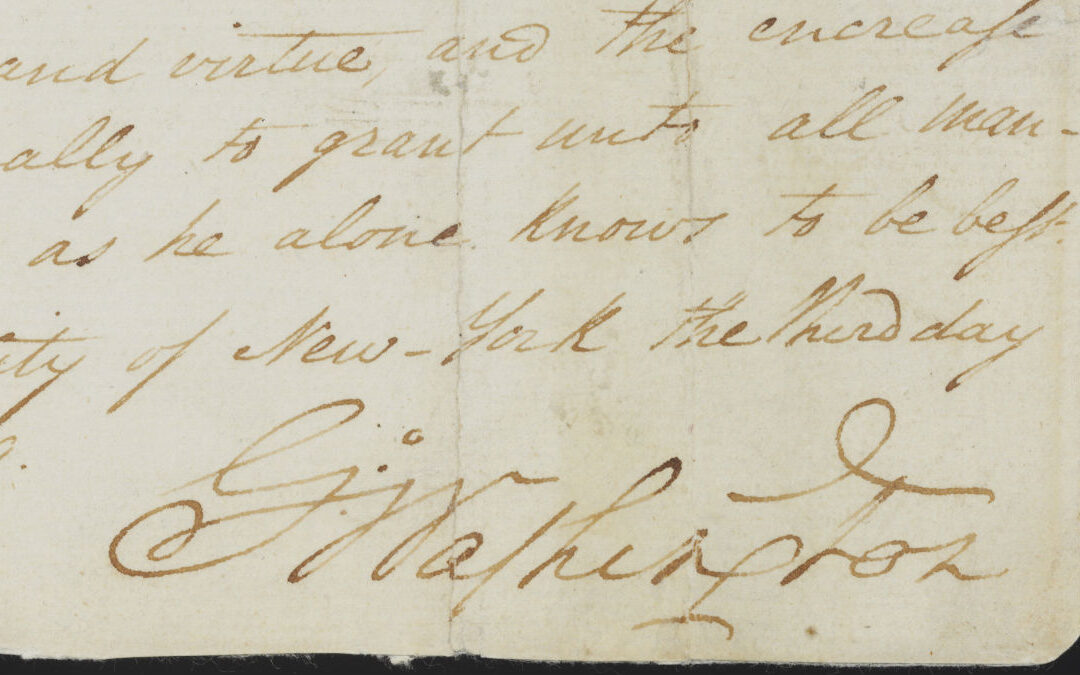 and virtue, and the encrease
ally to grant unto all man-
as he alone knows to be best.
ity of New-York the third day
Go: Washington